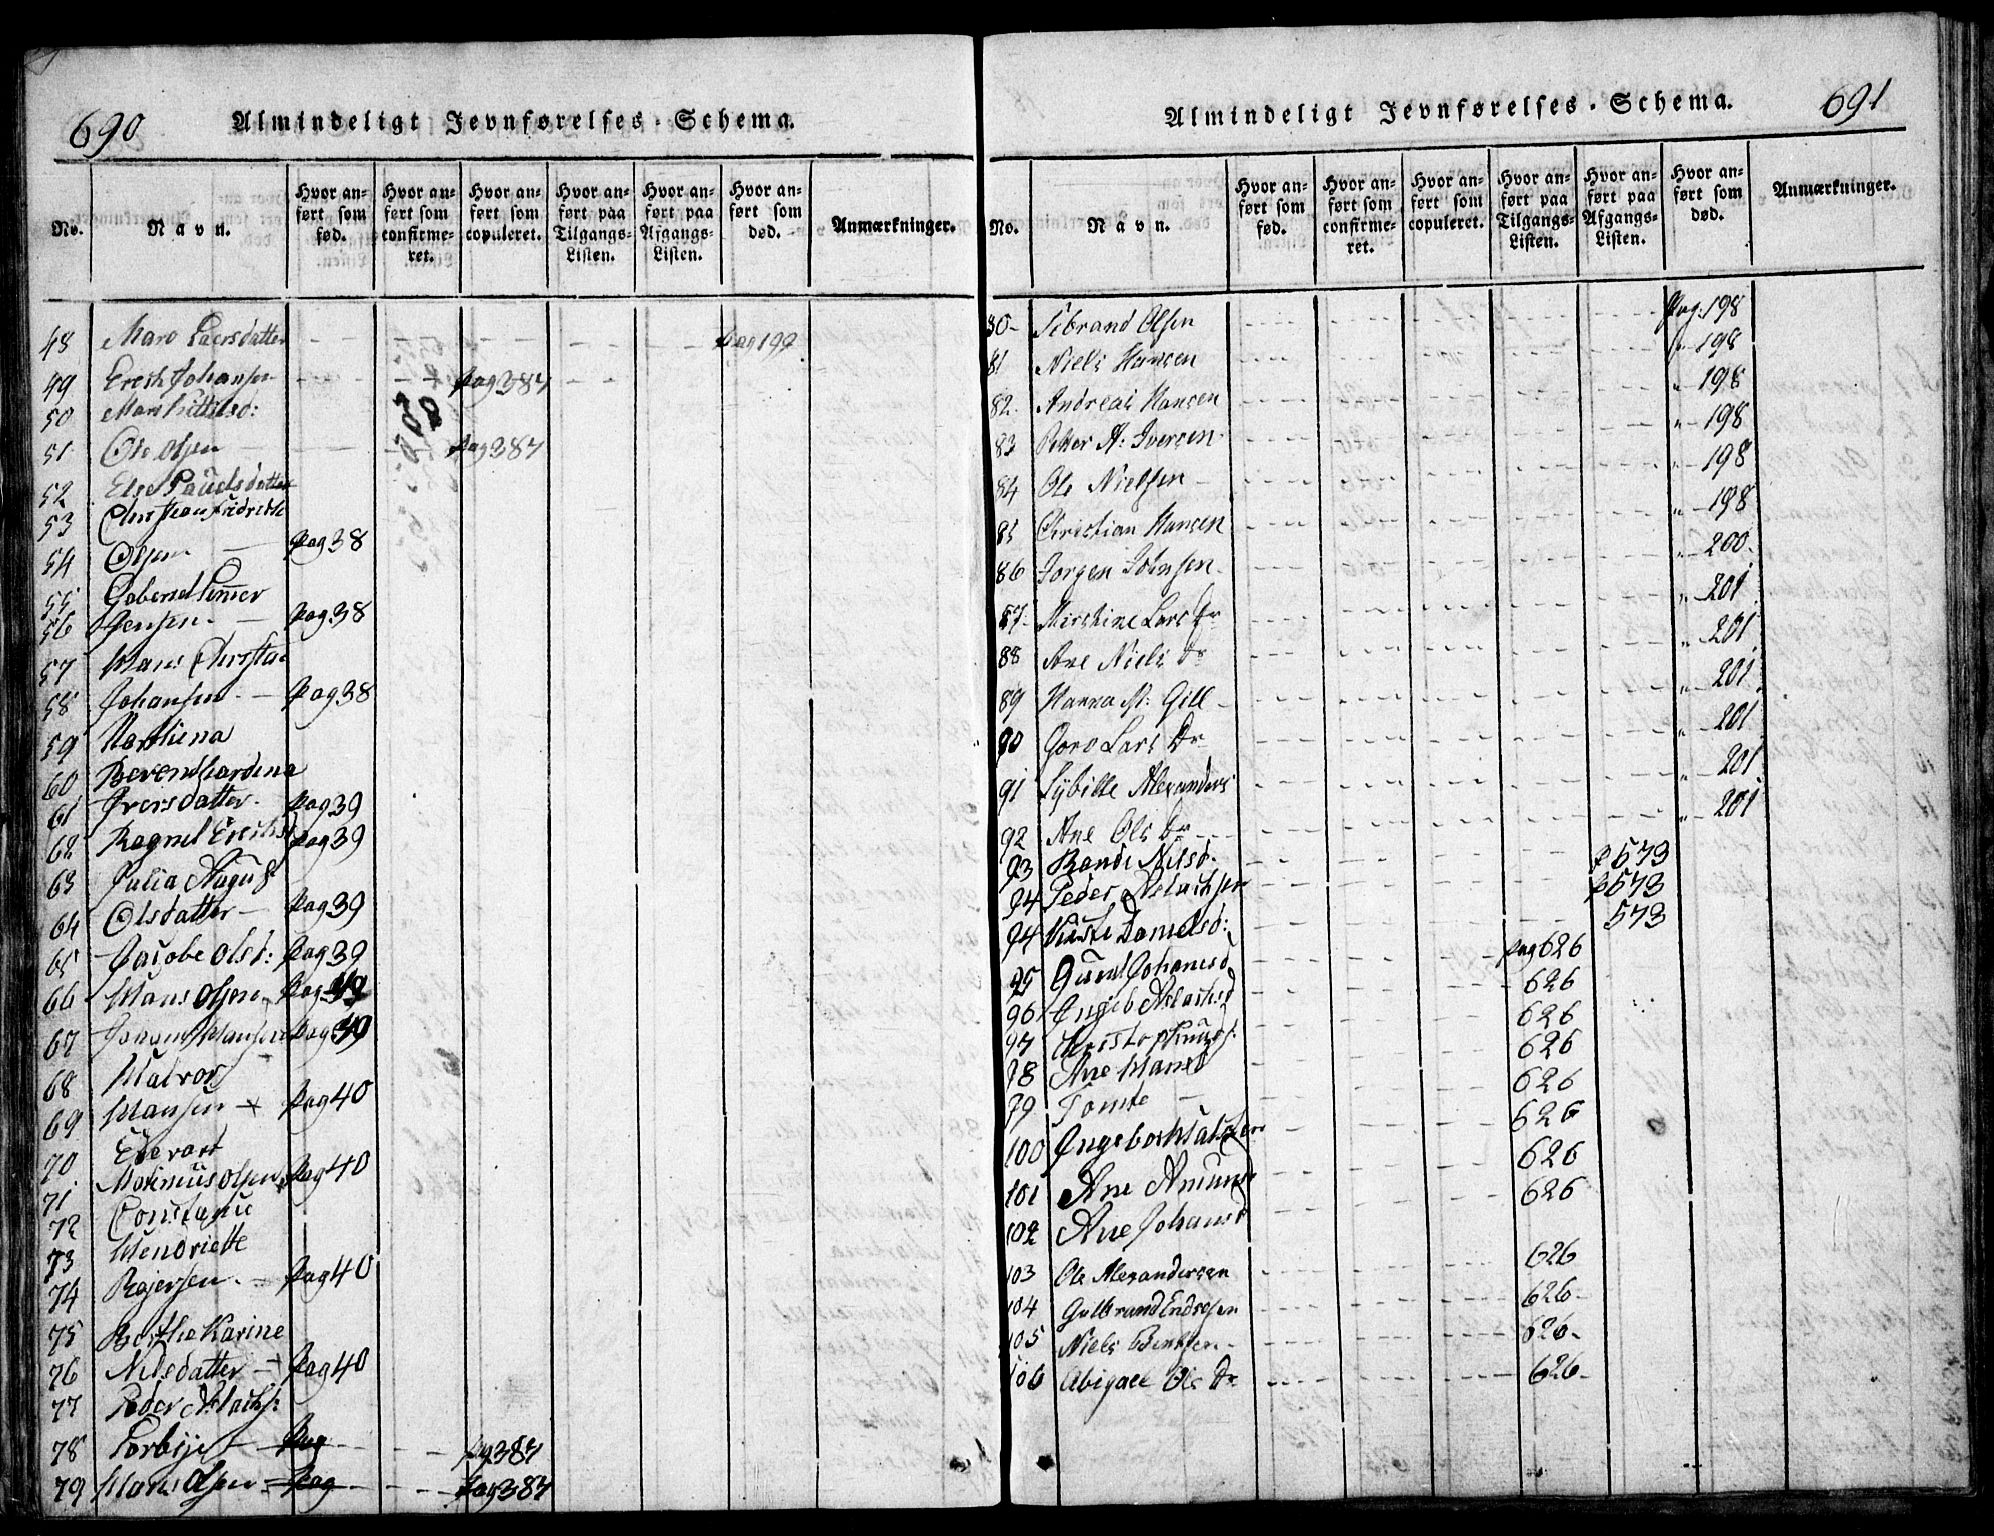 690
Almindeligt Jevnførelses-Schema.
No.
Navn.
Hvor anført som fød.
Hvor anført som confirmeret.
Hvor anført som copuleret.
Hvor anført paa Tilgangs-Listen.
Hvor anført paa Afgangs-Listen.
Hvor anført som død.
Anmærkninger.
48 Maro Laersdatter Pag 199
49 Erech Johansen Pag 387
50
51 Ole Olsen Pag 387
52 Else Pauelsdatter
53
54 Olsen Pag 38
55
56 Jensen Pag 38
57 Hans Christia
58 Johansen Pag 38
59 Marthiena
60 Berendhardina
61 Iversdatter Pag 39
62 Pag 39
63 Julia August
64 Olsdatter Pag 39
65 Jacobe Olsd: Pag 39
66 Hans Olsen
67
68 Halvor
69 Hansen Pag 40
70 Edevart
71 Marinius Olsen Pag 40
72
73 Hendriette
74 Pag 40
75 Berthe Karine
76 Nilsdatter Pag 40
77
78 Torbijer Pag Pag 387
79 Hans Olsen Pag Pag 387
Almindeligt Jevnførelses-Schema.
691
No.
Navn.
Hvor anført som fød.
Hvor anført som confirmeret.
Hvor anført som copuleret.
Hvor anført paa Tilgangs-Listen.
Hvor anført paa Afgangs-Listen.
Hvor anført som død.
Anmærkninger.
80 Sebrand Olsen Pag. 198
81 Niels Hansen " 198
82 Andreas Hansen " 198
83 Petter A: Iversen " 198
84 Ole Nielsen " 198
85 Christian Hansen " 198
86 Jørgen Johnsen " 200
87 Kirstine Lars Dr " 201
88 Ane Niels Dr " 201
89 Hanna M: Gill " 201
90 Goro Lars Dr " 201
91 Sybille Alexanders " 201
92 Ane Ols Dr " 201
93 Rande Nilsd. P 573
94 Peder P 573
94 Danielsd: 573
95 Johanesd Pag 626
96 626
97 626
98 Ane Hansd 626
99 Tomte 626
100 626
101 Ane Amuns 626
102 Ane Johansd 626
103 Ole Alexandersen 626
104 Gulbrand Endresen 626
105 Niels Bentsen 626
106 Abigael Ols Dr 626